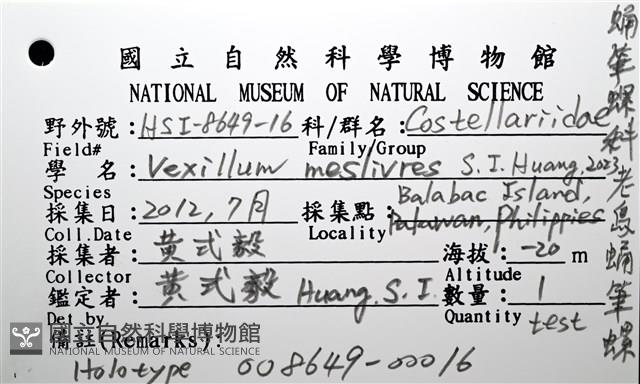 國立自然科學博物館
NATIONAL MUSEUM OF NATURAL SCIENCE
野外號：HSI-8649-16 科/群名：Costellariidae
Field# Family/Group
學 名：Vexillum meslivres S.I.Huang,2023
Species
Balabac Island,
採集日：2012,7月 採集點：Palawan, Philippies
Coll.Date Locality
採集者：黃式毅 海拔：-20 m
Collector Altitude
鑑定者：黃式毅 Huang.S.I. 數量：1
Det.by Quantity test
備註(Remarks):
Holotype 008649-00016
蛹筆螺科老島蛹筆螺
國立自然科學博物館
NATIONAL MUSEUM OF NATURAL SCIENCE